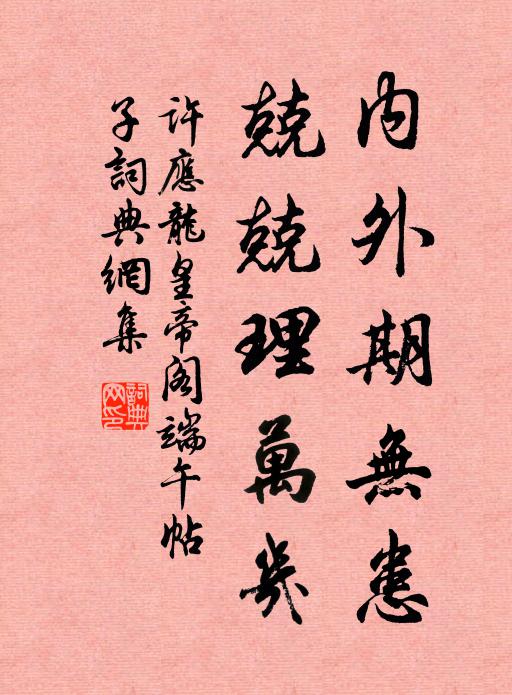 內外期無患
兢兢理萬幾
許應龍皇帝閣端午帖
子詞典網集
詞典
网印